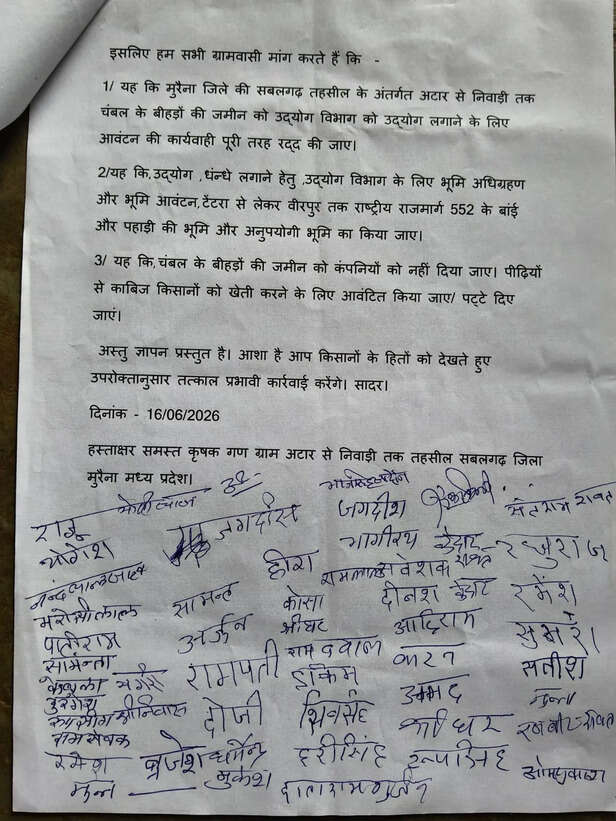 इसलिए हम सभी ग्रामवासी मांग करते हैं कि -
1/ यह कि मुरैना जिले की सबलगढ़ तहसील के अंतर्गत अटार से निवाड़ी तक
चंबल के बीहड़ों की जमीन को उद्योग विभाग को उद्योग लगाने के लिए
आवंटन की कार्यवाही पूरी तरह रद्द की जाए।
2/यह कि,उद्योग ,धंन्धे लगाने हेतु ,उद्योग विभाग के लिए भूमि अधिग्रहण
और भूमि आवंटन,टेंटरा से लेकर वीरपुर तक राष्ट्रीय राजमार्ग 552 के बांई
और पहाड़ी की भूमि और अनुपयोगी भूमि का किया जाए।
3/ यह कि,चंबल के बीहड़ों की जमीन को कंपनियों को नहीं दिया जाए। पीढ़ियों
से काबिज किसानों को खेती करने के लिए आवंटित किया जाए/ पट्टे दिए
जाएं।
अस्तु ज्ञापन प्रस्तुत है। आशा है आप किसानों के हितों को देखते हुए
उपरोक्तानुसार तत्काल प्रभावी कार्रवाई करेंगे। सादर।
दिनांक - 16/06/2026
हस्ताक्षर समस्त कृषक गण ग्राम अटार से निवाड़ी तक तहसील सबलगढ़ जिला
मुरैना मध्य प्रदेश।
राजू जगदीस जगदीश
योगेश हीरा भागीरथ केदार रघुराज
सामन्त कोसा दीनेश केदार रमेश
पातीराम अर्जुन श्रीधर आदिराम
सामन्ता रामपती राम दयाल करन सतीश
हाकिम अमद मुन्ना
श्रीनिवास दोजी शिवसिंह
रामसेवक हरीसिंह रूपसिंह
रमेश बृजेश धर्मेन्द्र ओमप्रकाश
मुकेश दाताराम गुर्जर